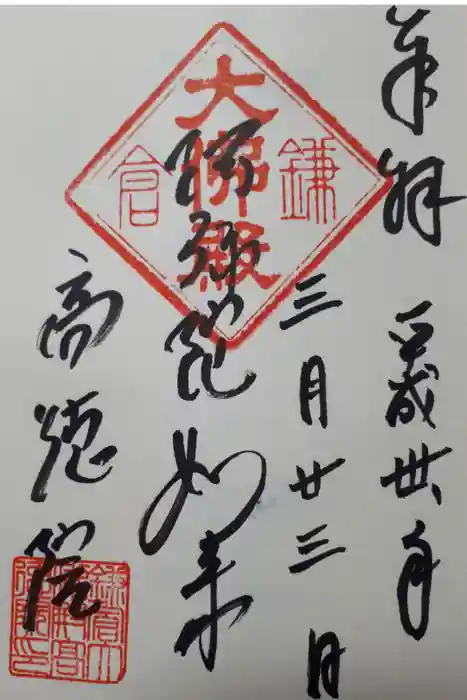 奉拝 平成卅年
三月廿三日
鎌倉
大佛殿
阿弥陀如来
高徳院